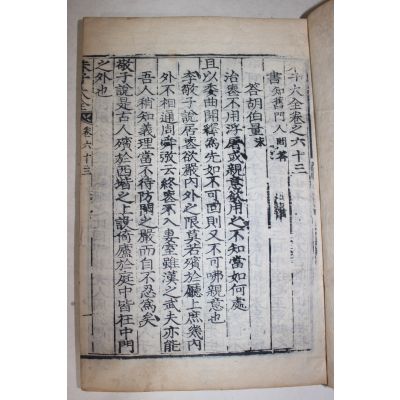 子大全卷之六十三
書 知舊門人問答
答胡伯量 泳
治喪不用浮屠或親意欲用之不知當如何處
且以委曲開釋爲先如不可回則又不可咈親意也
李敬子說居喪欲嚴內外之限莫若殯於廳上庶幾內
外不相通周舜弼云終喪不入妻室雖漢之武夫亦能
吾人稍知義理當不待防閑之嚴而自不忍爲矣
敬子說是古人殯於西階之上設倚廬於庭中皆在中門
之外也
朱子大全 卷六十三